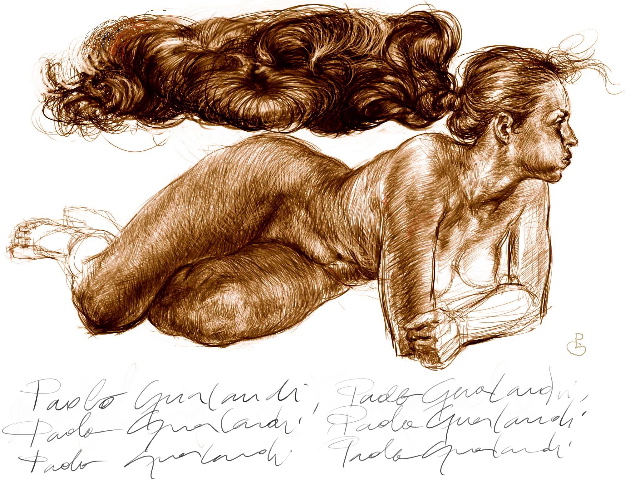 Paolo Gualandi, Paolo Gualandi,
Paolo Gualandi, Paolo Gualandi
Paolo Gualandi Paolo Gualandi